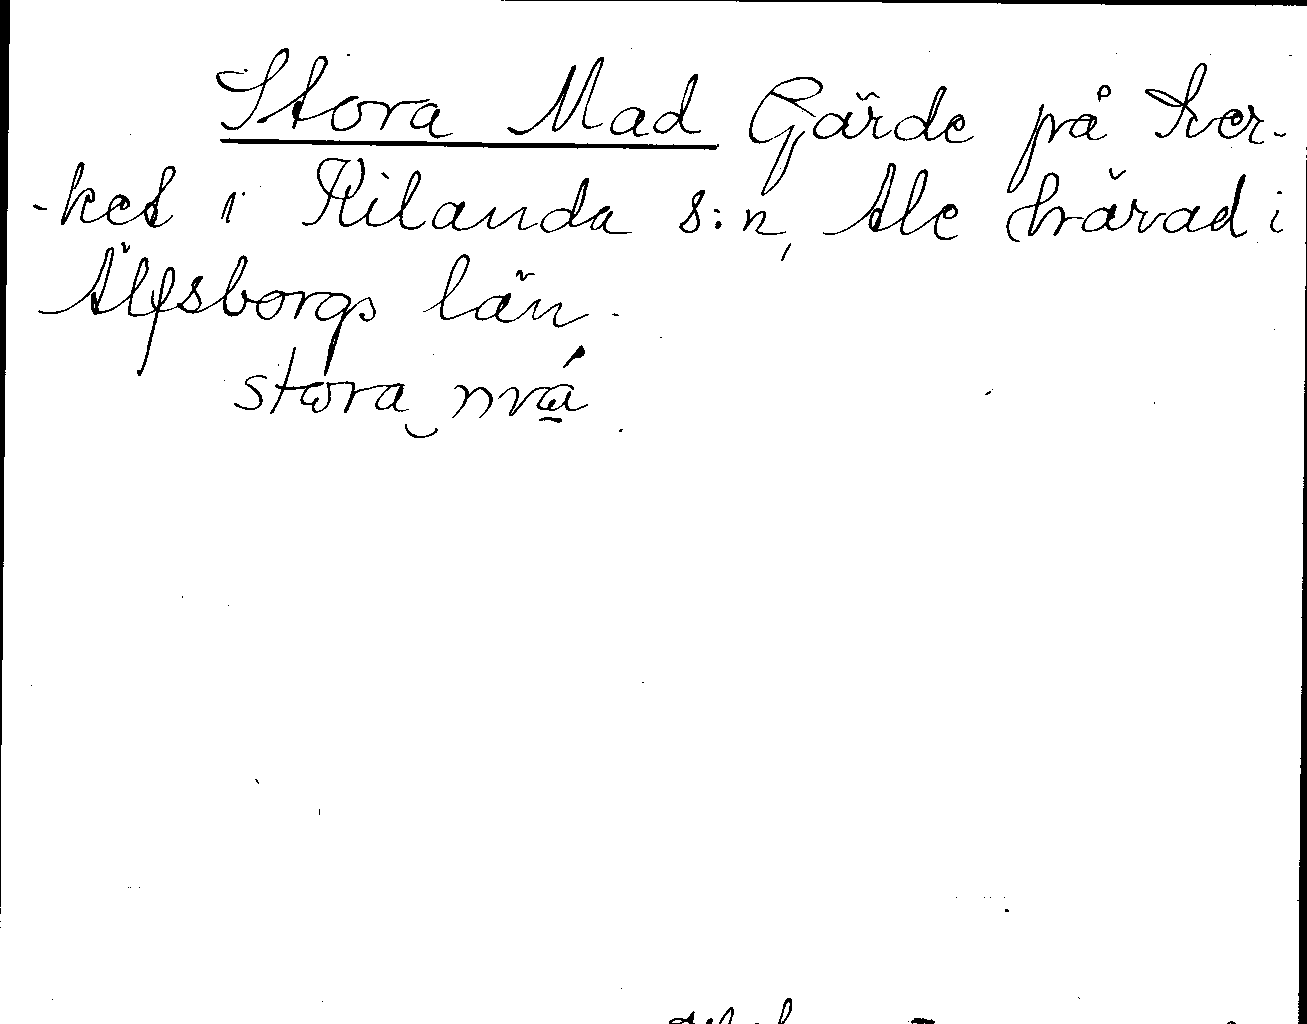 Stora Mad Gärde på Sver-
-ket i Kilanda s:n, Ale härad i
Älfsborgs län.